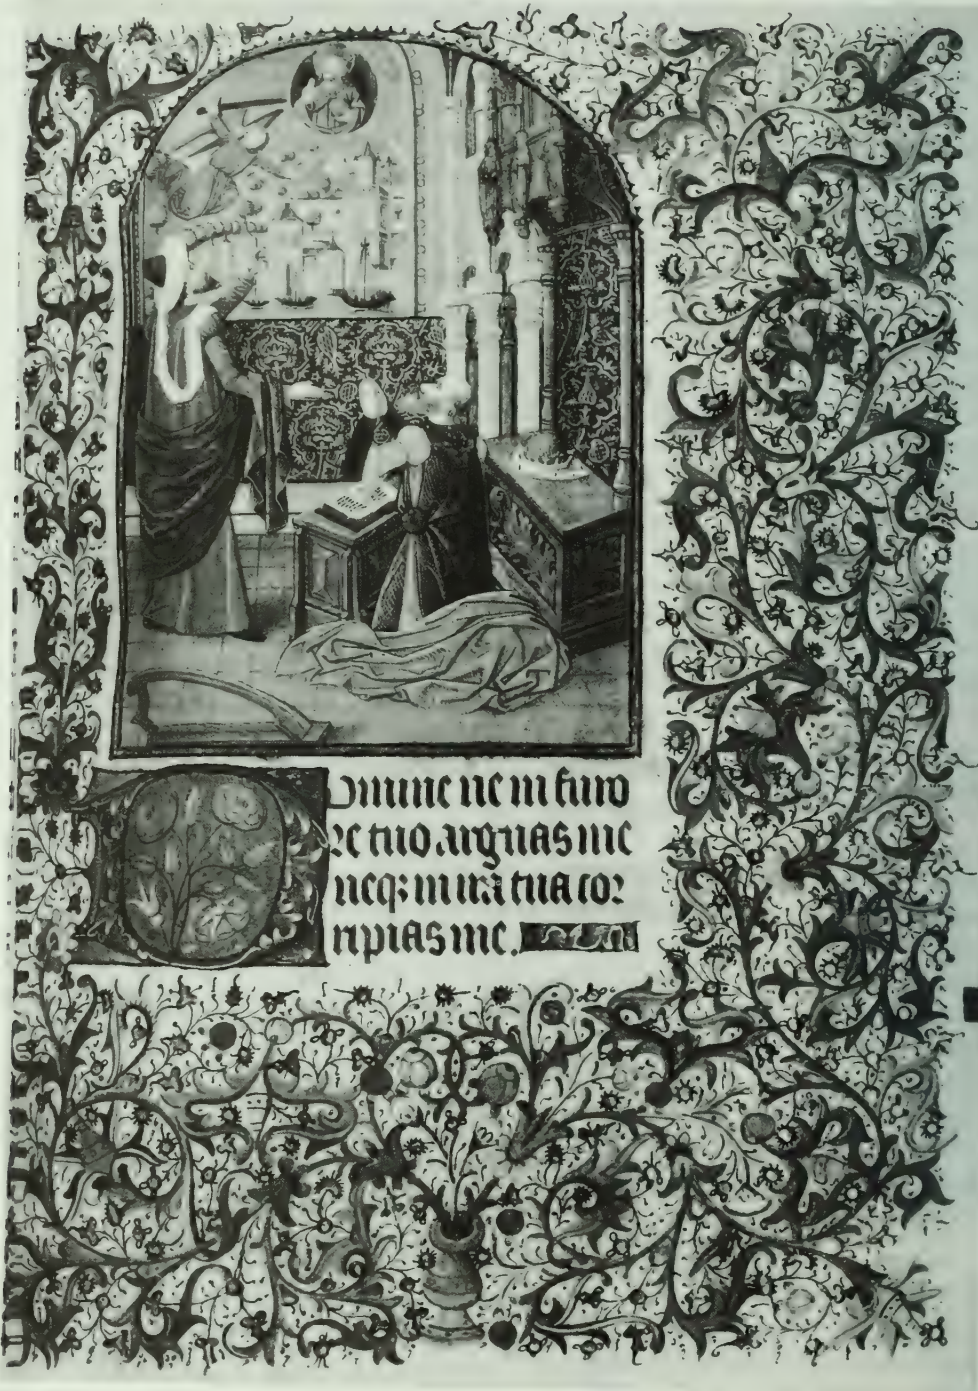 Domine ne in furo
re tuo arguas me
neq; in ira tua cor
ripias me.